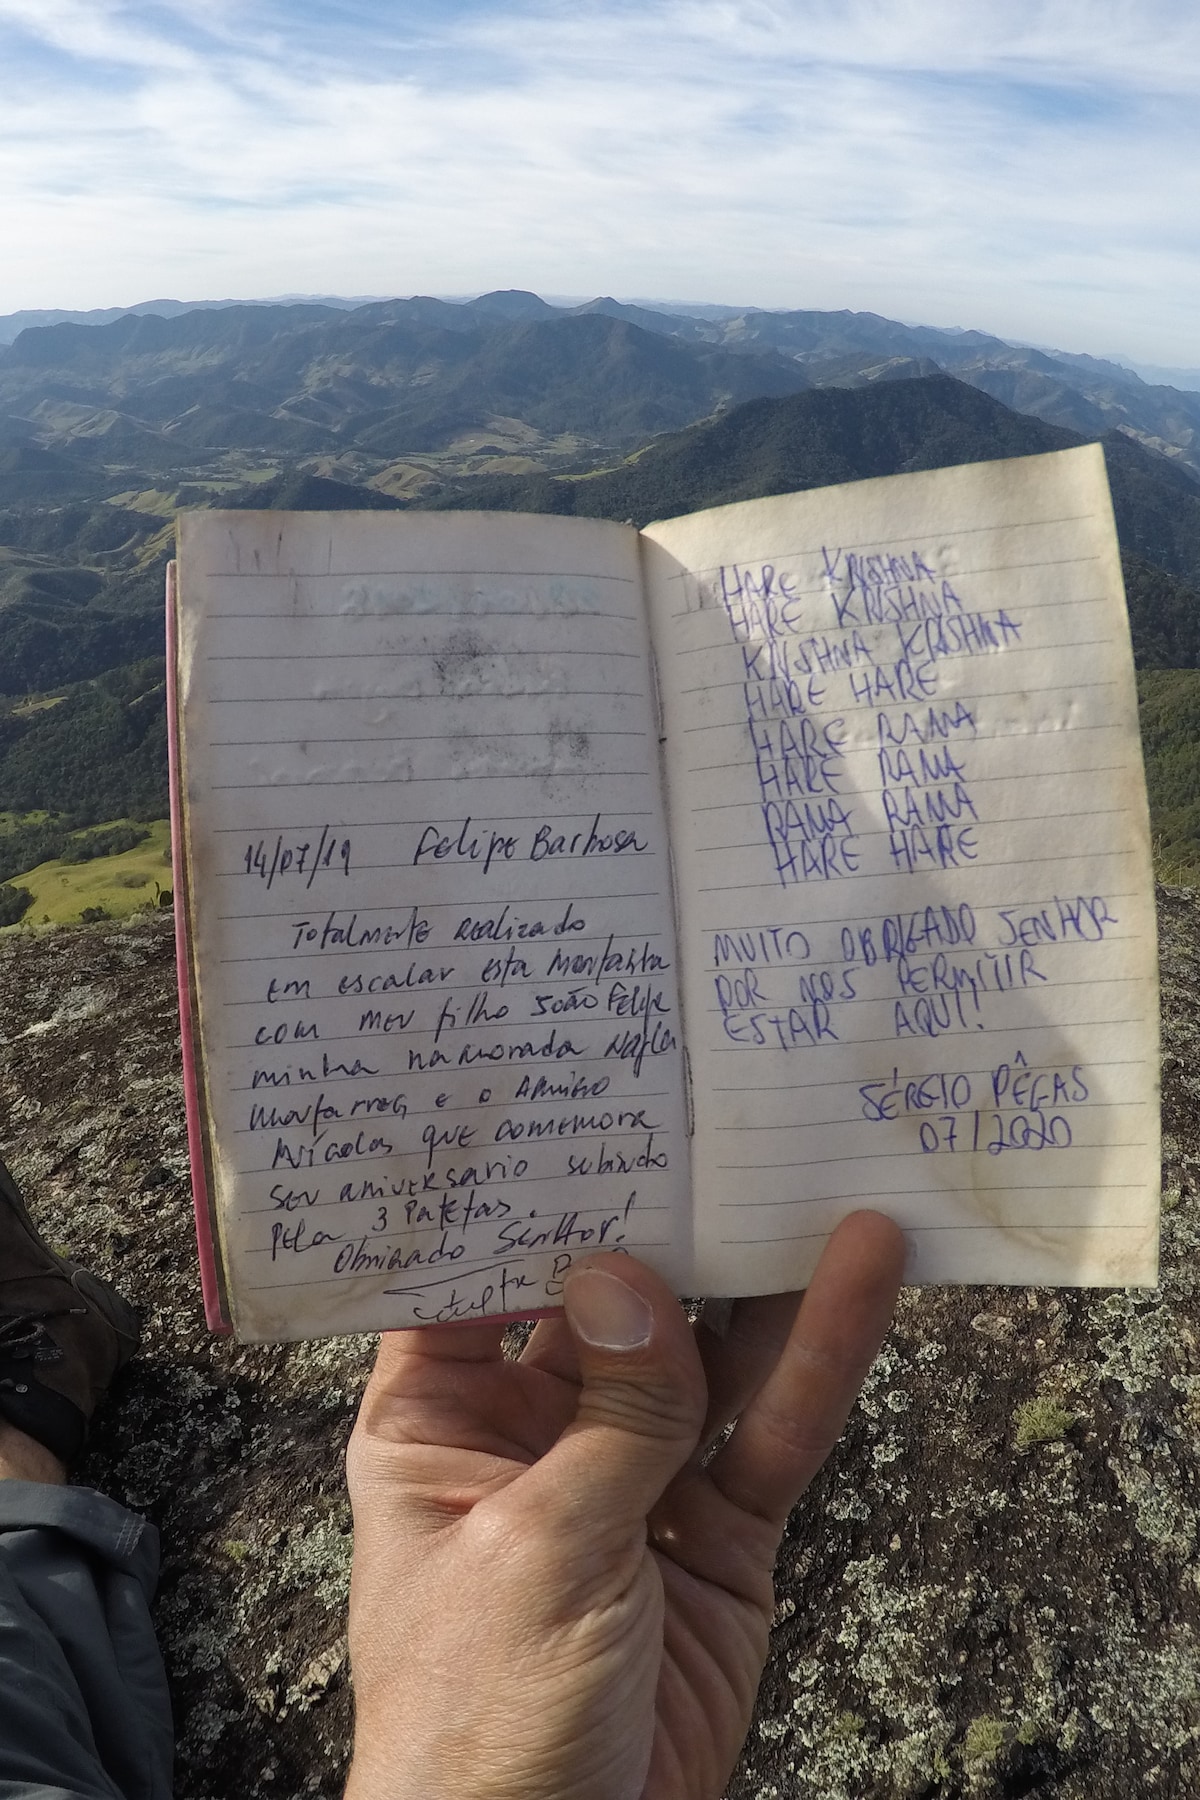 14/07/19 Felipe Barbosa
Totalmente realizado
em escalar esta montanha
com meu filho João Felipe
minha namorada Nayla
e o amigo
Nícolas que comemora
seu aniversario subindo
pela 3 Patetas.
Obrigado Senhor!
HARE KRISHNA
HARE KRISHNA
KRISHNA KRISHNA
HARE HARE
HARE RAMA
HARE RAMA
RAMA RAMA
HARE HARE
MUITO OBRIGADO SENHOR
POR NOS PERMITIR
ESTAR AQUI!
SÉRGIO PÊGAS
07/2020